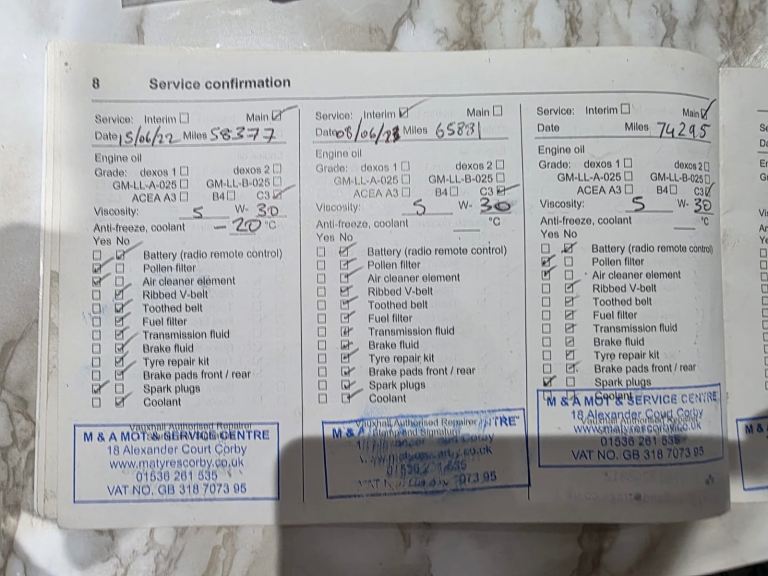 8 Service confirmation
Service: Interim Main
Date 15/06/22 Miles 58377
Engine oil
Grade: dexos 1 dexos 2
GM-LL-A-025 GM-LL-B-025
ACEA A3 B4 C3
Viscosity: 5 W- 30
Anti-freeze, coolant -20 °C
Yes No
Battery (radio remote control)
Pollen filter
Air cleaner element
Ribbed V-belt
Toothed belt
Fuel filter
Transmission fluid
Brake fluid
Tyre repair kit
Brake pads front / rear
Spark plugs
Coolant
Vauxhall Authorised Repairer
M & A MOT & SERVICE CENTRE
18 Alexander Court Corby
www.matyrescorby.co.uk
01536 261 535
VAT NO. GB 318 7073 95
Service: Interim Main
Date 08/06/23 Miles 65831
Engine oil
Grade: dexos 1 dexos 2
GM-LL-A-025 GM-LL-B-025
ACEA A3 B4 C3
Viscosity: 5 W- 30
Anti-freeze, coolant °C
Yes No
Battery (radio remote control)
Pollen filter
Air cleaner element
Ribbed V-belt
Toothed belt
Fuel filter
Transmission fluid
Brake fluid
Tyre repair kit
Brake pads front / rear
Spark plugs
Coolant
Vauxhall Authorised Repairer
M & A
Corby
7073 95
Service: Interim Main
Date Miles 74295
Engine oil
Grade: dexos 1 dexos 2
GM-LL-A-025 GM-LL-B-025
ACEA A3 B4 C3
Viscosity: 5 W- 30
Anti-freeze, coolant °C
Yes No
Battery (radio remote control)
Pollen filter
Air cleaner element
Ribbed V-belt
Toothed belt
Fuel filter
Transmission fluid
Brake fluid
Tyre repair kit
Brake pads front / rear
Spark plugs
Coolant
M & A MOT & SERVICE CENTRE
18 Alexander Court Corby
www.matyrescorby.co.uk
01536 261 535
VAT NO. GB 318 7073 95
M &